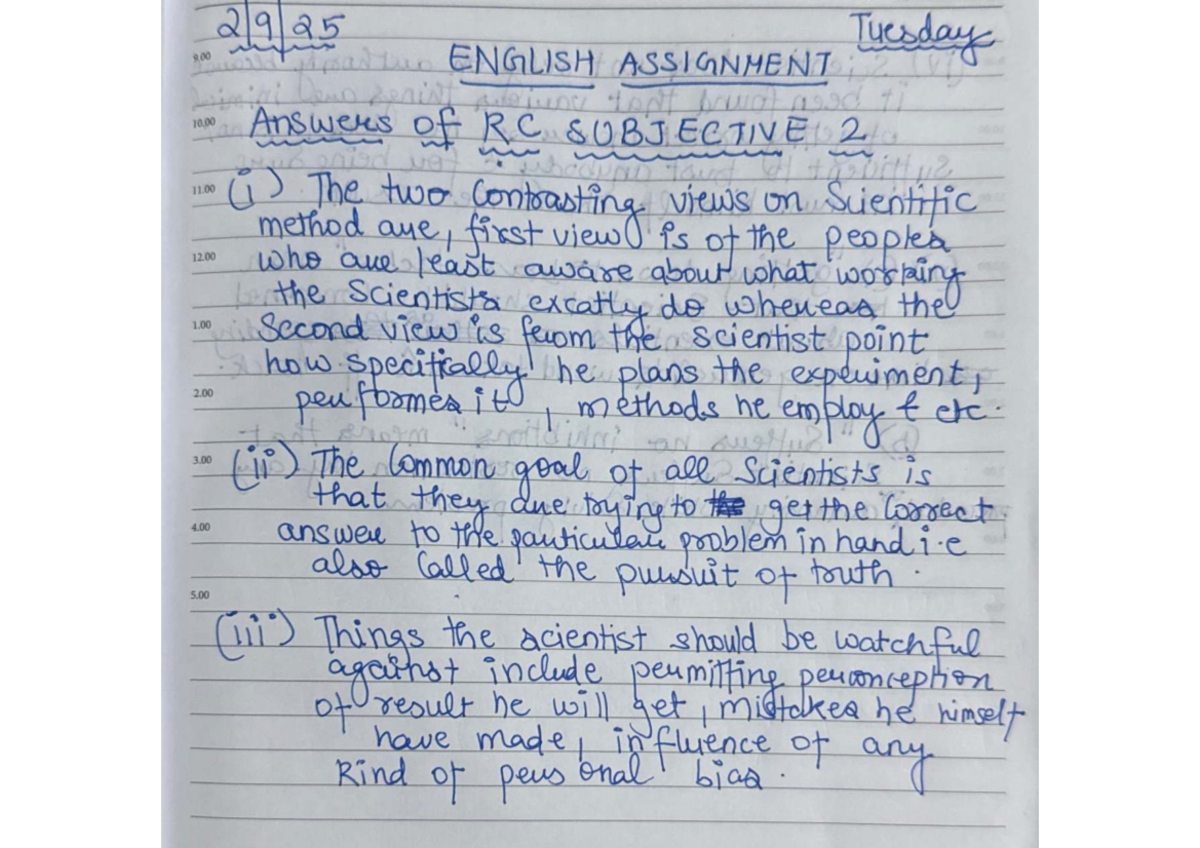 2/9/25 Tuesday
9.00 ENGLISH ASSIGNMENT
10.00 Answers of RC SUBJECTIVE 2
11.00 (i) The two contrasting views on Scientific
method are, first view is of the peoples
12.00 who are least aware about what working
the Scientists excatly do whereas the
1.00 Second view is from the scientist point
how specifically he plans the experiment,
2.00 performes it, methods he employ & etc.
3.00 (ii) The Common goal of all Scientists is
that they are trying to the get the Correct
4.00 answer to the particular problem in hand i.e
also Called the pursuit of truth.
5.00
(iii) Things the scientist should be watchful
against include permitting perconception
of result he will get, mistakes he himself
have made, influence of any
Kind of personal bias.